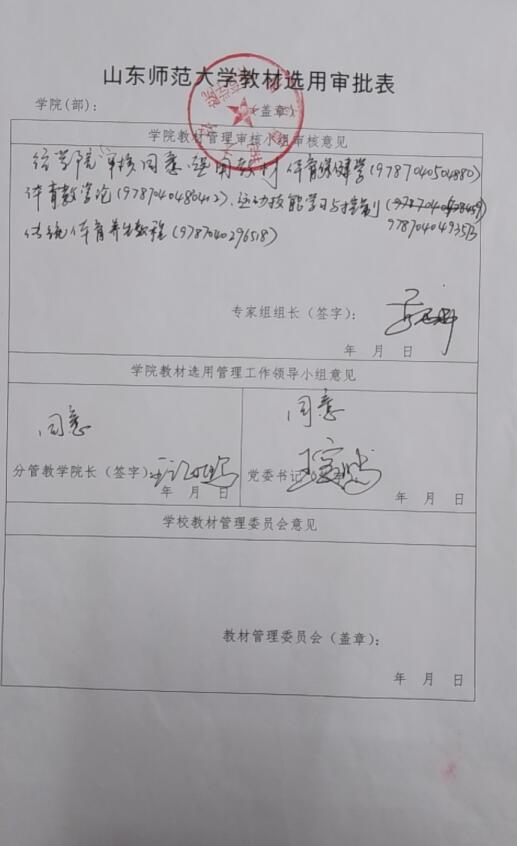 山东师范大学教材选用审批表
学院(部)： (盖章)
学院教材管理审核小组审核意见
经学院审核同意选用教材 体育保健学(9787040504880)
体育教学论(9787040480402)、运动技能学习与控制
9787040493573
传统体育养生教程(9787040296518)
专家组组长（签字）：
年 月 日
学院教材选用管理工作领导小组意见
同意
分管教学院长（签字）
年 月 日
同意
党委书记
年 月 日
学校教材管理委员会意见
教材管理委员会（盖章）：
年 月 日